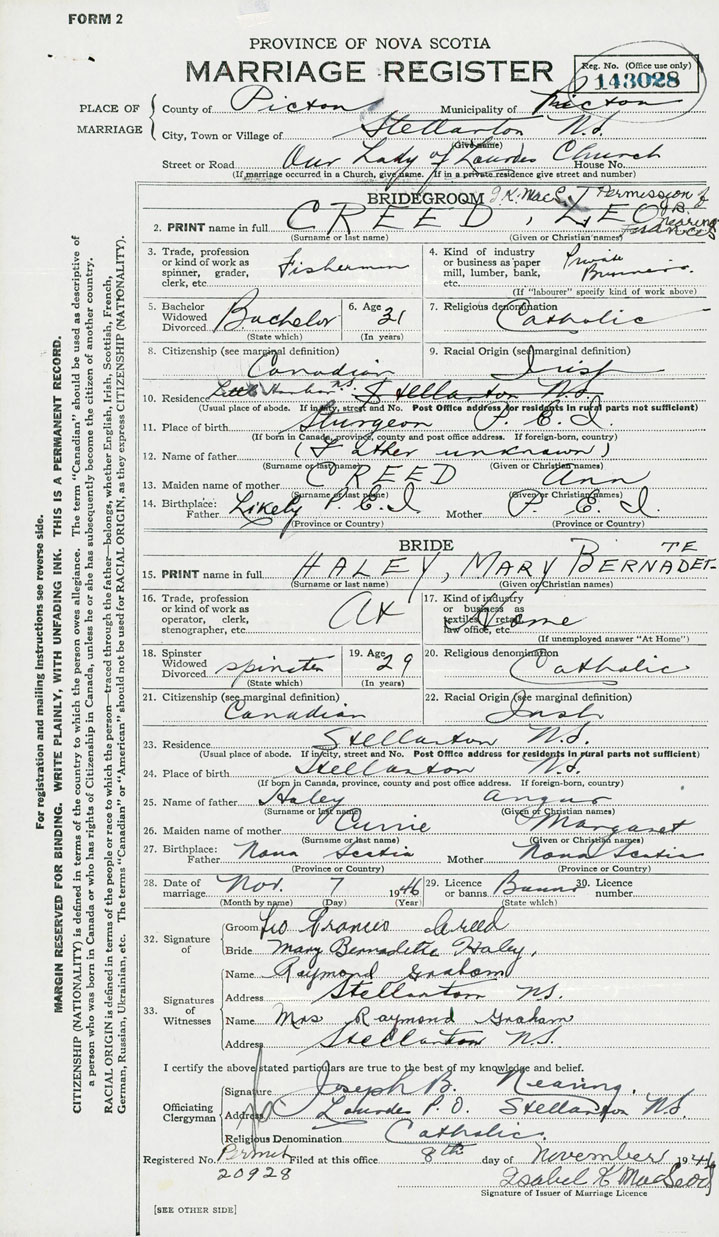 FORM 2
PROVINCE OF NOVA SCOTIA
MARRIAGE REGISTER
Reg. No. (Office use only)
143028
PLACE OF MARRIAGE
County of Pictou Municipality of Pictou
City, Town or Village of Stellarton N.S.
(Give name)
Street or Road Our Lady of Lourdes Church House No.
(If marriage occurred in a Church, give name. If in a private residence give street and number)
BRIDEGROOM I.K. MacL. Permission of J.B. Nearing
2. PRINT name in full CREED, LEO Francis
(Surname or last name) (Given or Christian names)
3. Trade, profession or kind of work as spinner, grader, clerk, etc. Fisherman
4. Kind of industry or business as paper mill, lumber, bank, etc. Private Business.
(If "labourer" specify kind of work above)
5. Bachelor Widowed Divorced Bachelor
(State which)
6. Age 31
(In years)
7. Religious denomination Catholic
8. Citizenship (see marginal definition) Canadian
9. Racial Origin (see marginal definition) Irish
10. Residence Little Harbour N.S. Stellarton N.S.
(Usual place of abode. If in city, street and No. Post Office address for residents in rural parts not sufficient)
11. Place of birth Sturgeon P.E.I.
(If born in Canada, province, county and post office address. If foreign-born, country)
12. Name of father (Father unknown)
(Surname or last name) (Given or Christian names)
13. Maiden name of mother CREED Ann
(Surname or last name) (Given or Christian names)
14. Birthplace: Father Likely P.E.I. Mother P.E.I.
(Province or Country) (Province or Country)
BRIDE
15. PRINT name in full HALEY, MARY BERNADETTE
(Surname or last name) (Given or Christian names)
16. Trade, profession or kind of work as operator, clerk, stenographer, etc. At
17. Kind of industry or business as textiles, retail, law office, etc. Home
(If unemployed answer "At Home")
18. Spinster Widowed Divorced spinster
(State which)
19. Age 29
(In years)
20. Religious denomination Catholic
21. Citizenship (see marginal definition) Canadian
22. Racial Origin (see marginal definition) Irish
23. Residence Stellarton N.S.
(Usual place of abode. If in city, street and No. Post Office address for residents in rural parts not sufficient)
24. Place of birth Stellarton N.S.
(If born in Canada, province, county and post office address. If foreign-born, country)
25. Name of father Haley Angus
(Surname or last name) (Given or Christian names)
26. Maiden name of mother Currie Margaret
(Surname or last name) (Given or Christian names)
27. Birthplace: Father Nova Scotia Mother Nova Scotia
(Province or Country) (Province or Country)
28. Date of marriage Nov. 7 1946
(Month by name) (Day) (Year)
29. Licence or banns Banns
(State which)
30. Licence number
32. Signature of
Groom Leo Francis Creed
Bride Mary Bernadette Haley.
33. Signatures of Witnesses
Name Raymond Graham
Address Stellarton N.S.
Name Mrs Raymond Graham
Address Stellarton N.S.
I certify the above stated particulars are true to the best of my knowledge and belief.
Officiating Clergyman
Signature Joseph B. Nearing.
Address Lourdes P.O. Stellarton N.S.
Religious Denomination Catholic.
Registered No. Permit 20928 Filed at this office 8th day of November 1946
Isabel K MacLeod
Signature of Issuer of Marriage Licence
[SEE OTHER SIDE]
For registration and mailing instructions see reverse side.
MARGIN RESERVED FOR BINDING. WRITE PLAINLY, WITH UNFADING INK. THIS IS A PERMANENT RECORD.
CITIZENSHIP (NATIONALITY) is defined in terms of the country to which the person owes allegiance. The term "Canadian" should be used as descriptive of
a person who was born in Canada or who has rights of Citizenship in Canada, unless he or she has subsequently become the citizen of another country.
RACIAL ORIGIN is defined in terms of the people or race to which the person—traced through the father—belongs, whether English, Irish, Scottish, French,
German, Russian, Ukrainian, etc. The terms "Canadian" or "American" should not be used for RACIAL ORIGIN, as they express CITIZENSHIP (NATIONALITY).